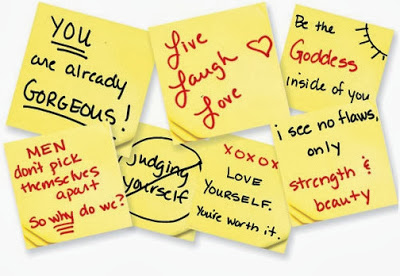 YOU
are already
GORGEOUS!
Live
Laugh
Love
Be the
Goddess
inside of you
MEN
don't pick
themselves
apart
So why do we?
judging
yourself
XOXOX
LOVE
YOURSELF.
You're worth it.
i see no flaws,
only
strength &
beauty